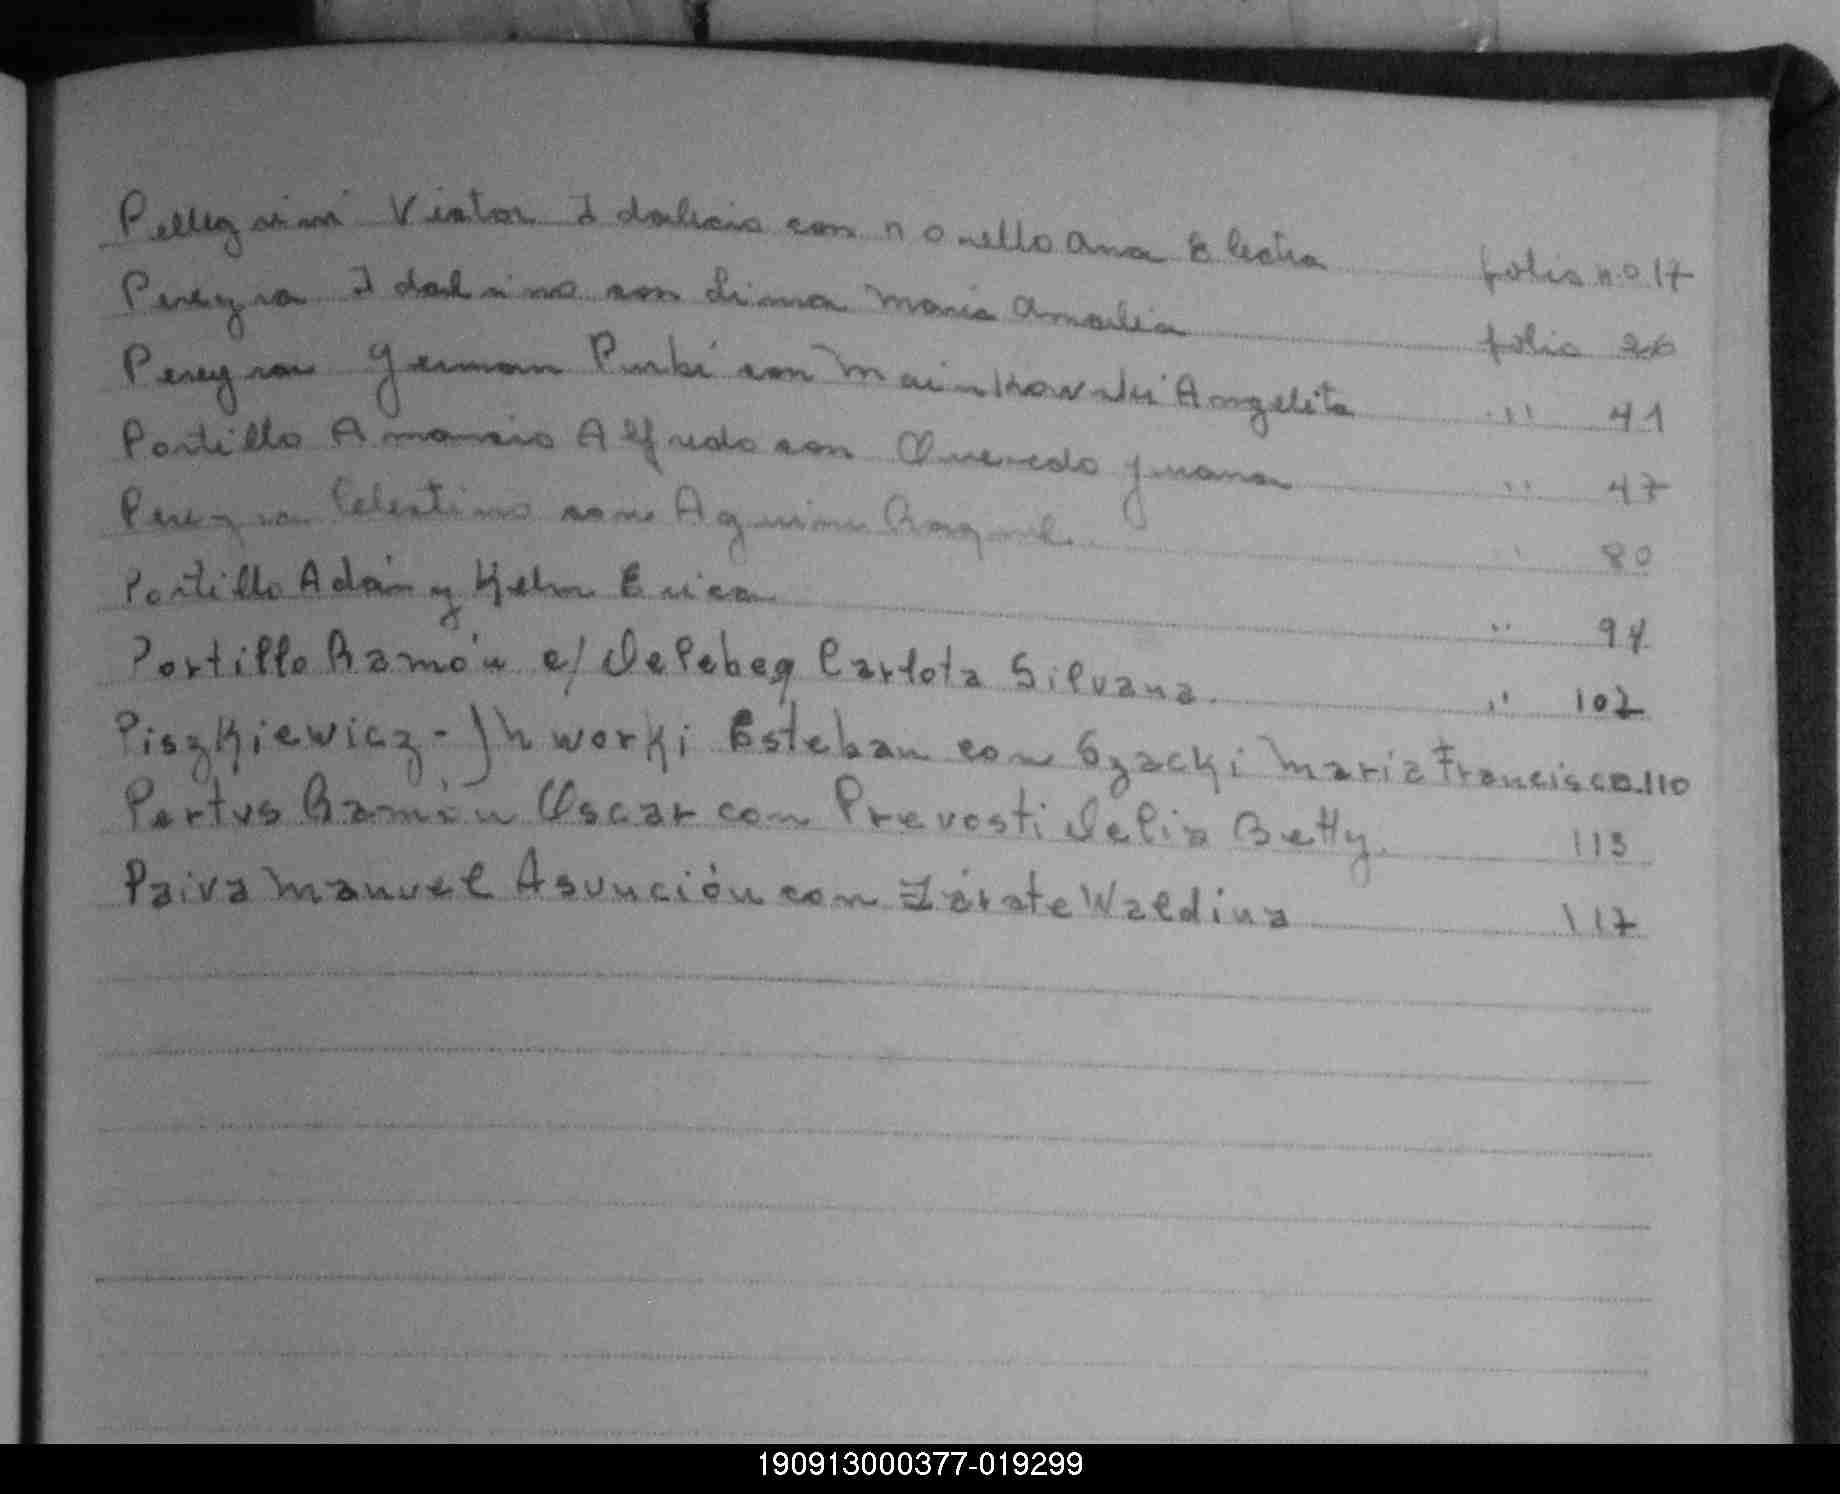 Pellegrini Victor Idalicio con Nonello Ana Electra folio no 17
Pereyra Idalino con Lima Maria Amalia folio 26
Pereyra German con Angelita " 41
Portillo Amancio Alfredo con Quevedo Juana " 47
Pereyra Celestino con Aguirre Raquel " 80
Portillo Adán y Helm Erica " 94
Portillo Ramón c/ Carlota Silvana. " 102
Piszkiewicz- Esteban con Szacki Maria Francisca 110
Pertus Ramón Oscar con Prevosti Delia Betty. 113
Paiva Manuel Asunción con Zárate Waldina 117
190913000377-019299